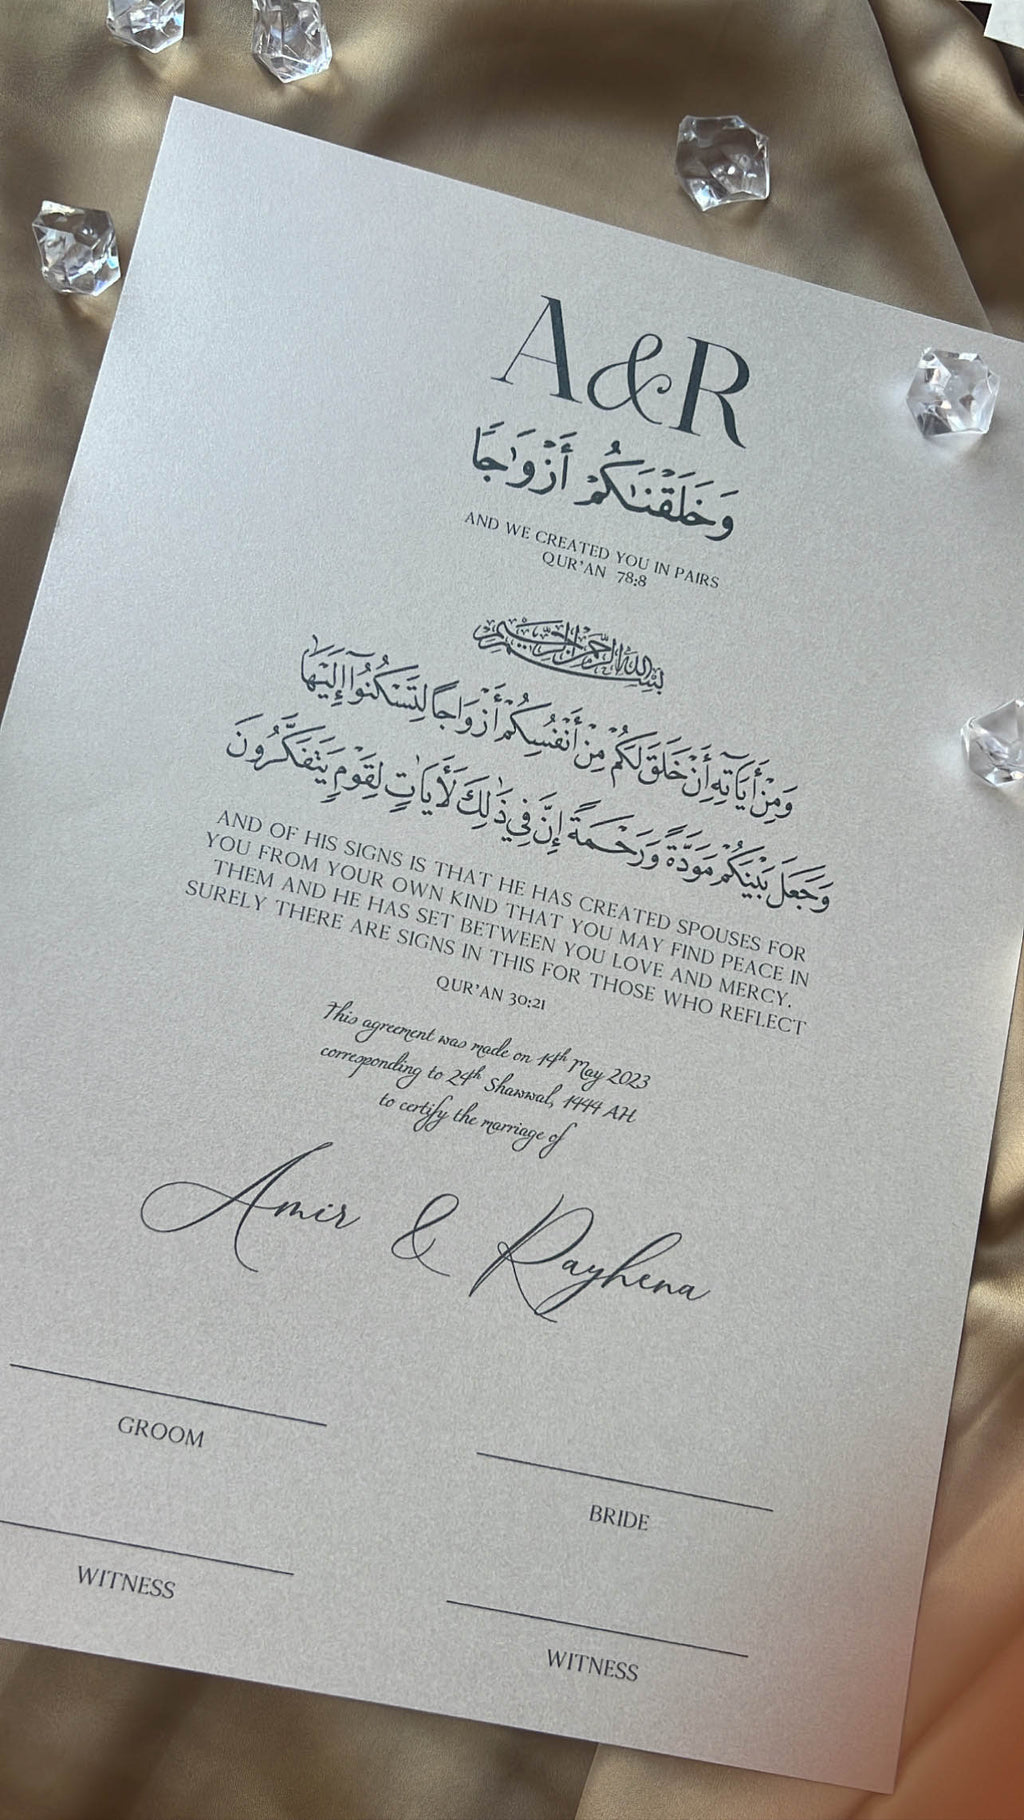 A&R
وَخَلَقْنَٰكُمْ أَزْوَٰجًا
AND WE CREATED YOU IN PAIRS
QUR'AN 78:8
بسم الله الرحمن الرحيم
وَمِنْ أَيَاتِهِ أَنْ خَلَقَ لَكُم مِنْ أَنْفُسِكُمْ أَزْوَاجًا لِتَسْكُنُوا إِلَيْهَا
وَجَعَلَ بَيْنَكُمْ مَوَدَّةً وَرَحْمَةً إِنَّ فِي ذَٰلِكَ لَأَيَاتٍ لِقَوْمٍ يَتَفَكَّرُونَ
AND OF HIS SIGNS IS THAT HE HAS CREATED SPOUSES FOR
YOU FROM YOUR OWN KIND THAT YOU MAY FIND PEACE IN
THEM AND HE HAS SET BETWEEN YOU LOVE AND MERCY.
SURELY THERE ARE SIGNS IN THIS FOR THOSE WHO REFLECT
QUR'AN 30:21
This agreement was made on 14th May 2023
corresponding to 24th Shawwal, 1444 AH
to certify the marriage of
Amir & Rayhena
GROOM
BRIDE
WITNESS
WITNESS